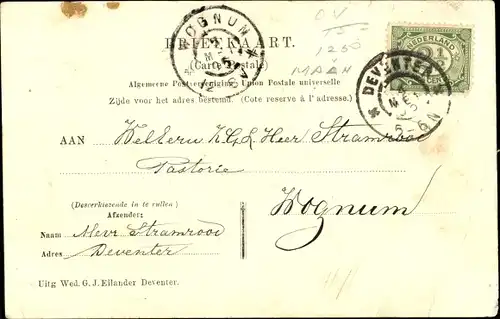 BRIEFKAART.
(Carte Postale)
Algemeene Postvereeniging. Union Postale universelle
Zijde voor het adres bestemd. (Cote reservé à l'adresse.)
OGNUM
NEDERLAND
2½
DEVENTER
OV
1250
AAN Heer Stramrood
Pastorie
Wognum
(Desverkiezende in te vullen)
Afzender:
Naam Mevr Stramrood
Adres Deventer
Uitg Wed. G. J. Eilander Deventer.